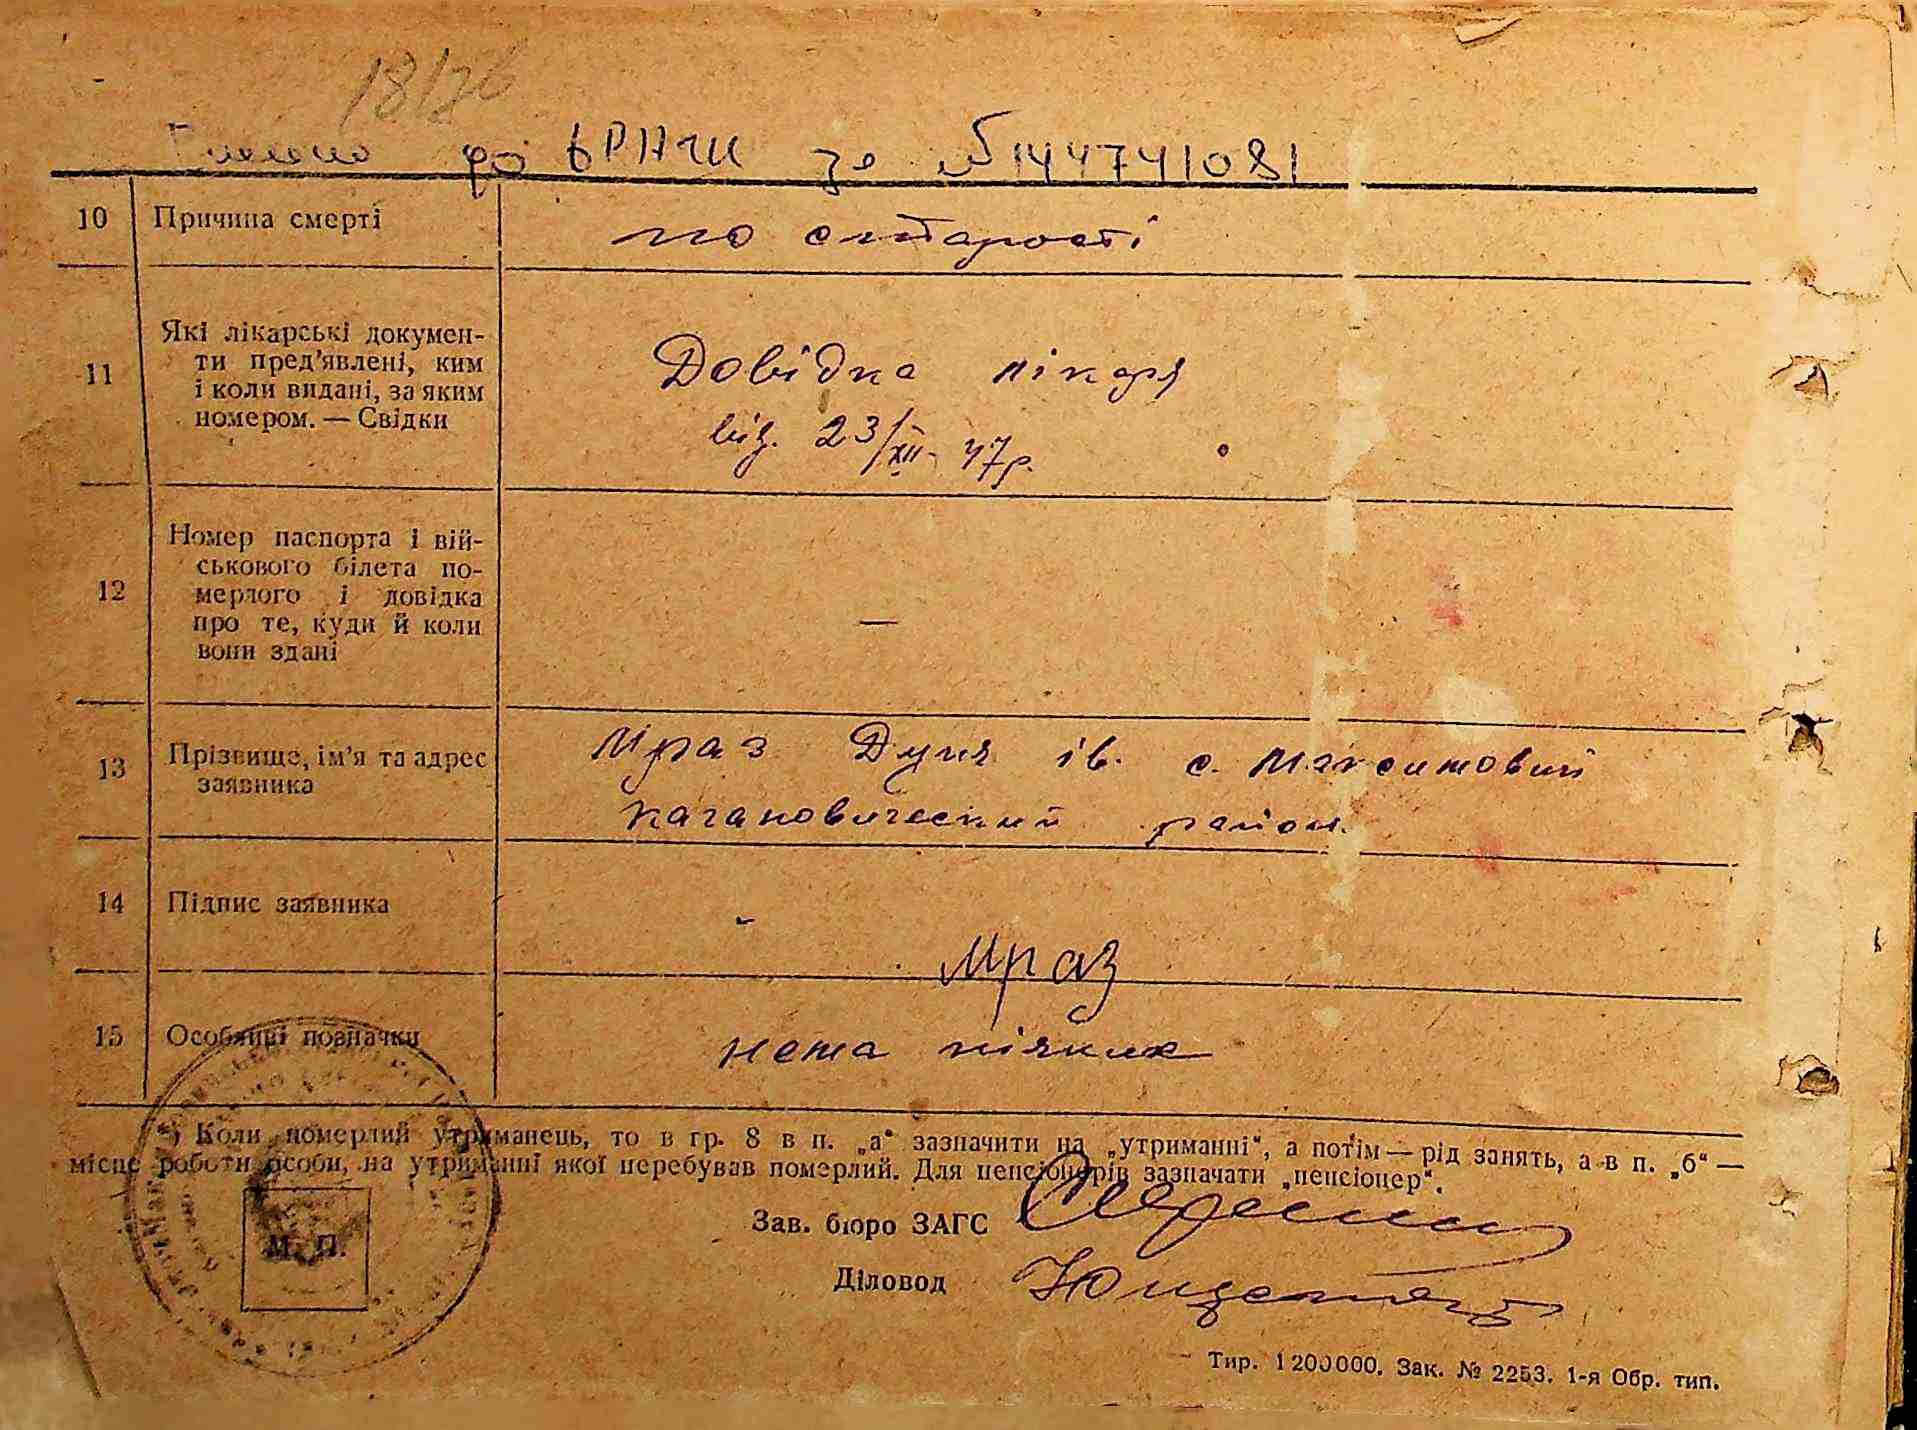 18/76
до ЬРНГИ за № 144741081
10 Причина смерті по старості
11 Які лікарські документи пред'явлені, ким і коли видані, за яким номером. — Свідки
Які лікарські докумен-
ти пред'явлені, ким
і коли видані, за яким
номером. — Свідки
Довідка лікаря
від. 23/XII- 47р.
12
Номер паспорта і вій-
ськового білета по-
мерлого і довідка
про те, куди й коли
вони здані
—
13
Прізвище, ім'я та адрес
заявника
Мраз Дуня ів. с. Максимовичі
Кагановический район.
14 Підпис заявника
Мраз
15 Особливі позначки нема ніяких
Коли померлий утриманець, то в гр. 8 в п. „а“ зазначити на „утриманні“, а потім — рід занять, а в п. „б“ —
місце роботи особи, на утриманні якої перебував померлий. Для пенсіонерів зазначати „пенсіонер“.
Зав. бюро ЗАГС
М. П.
Діловод
Тир. 1200000. Зак. № 2253. 1-я Обр. тип.